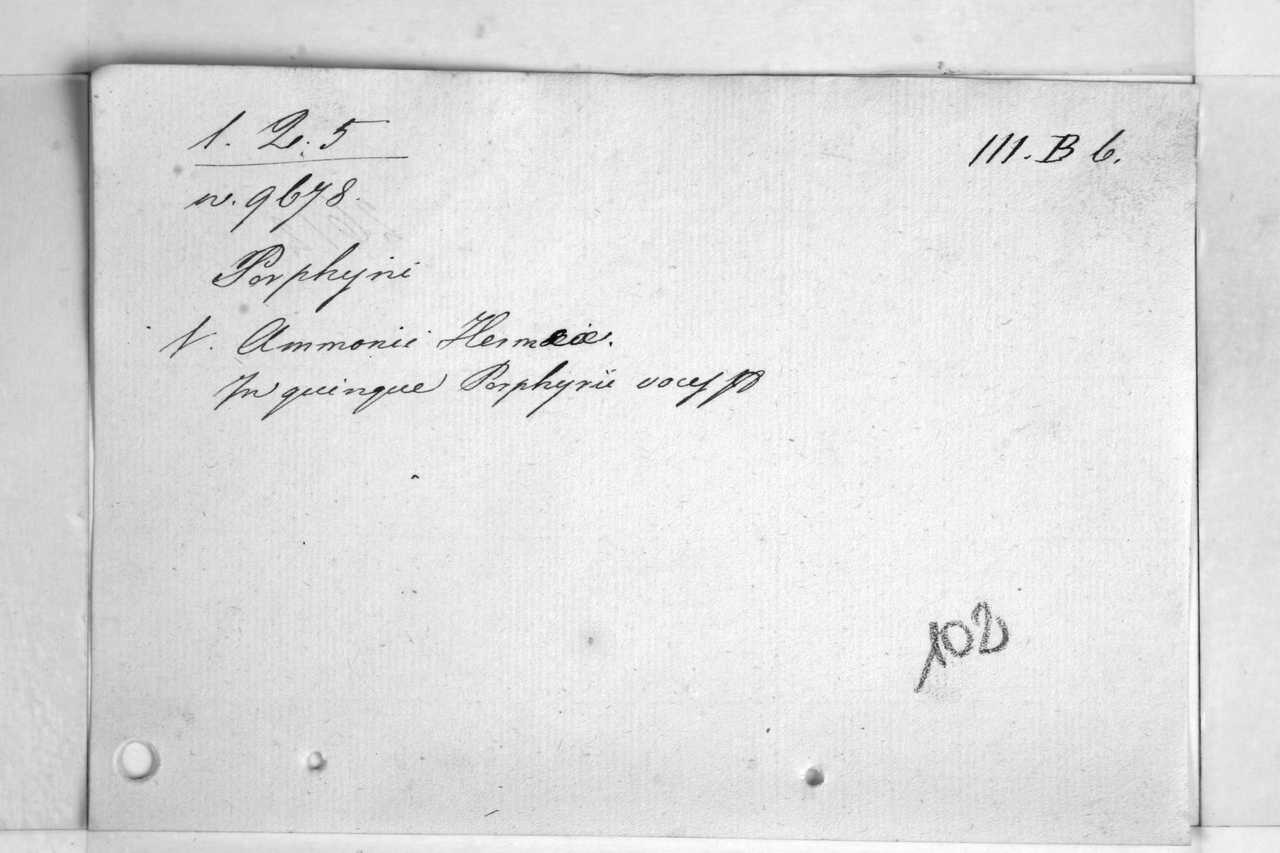 1. 2. 5
III. B 6.
n. 9678.
Porphyrii
V. Ammonii Hermeiæ.
In quinque Porphyrii voces
102